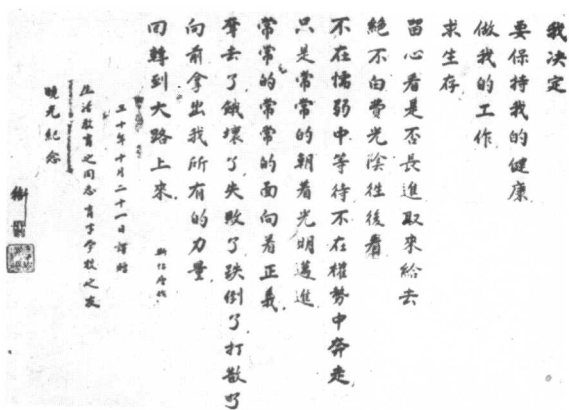 我决定
要保持我的健康
做我的工作
求生存
留心看是否長進取來給去
絕不白費光陰往後看
不在懦弱中等待不在權勢中奔走
只是常常的朝着光明邁進
常常的常常的面向着正義
餓壞了失敗了跌倒了打散了
向前拿出我所有的力量
回轉到大路上來
三十年十月二十一日譯
生活教育之同志育才學校之友
曉光紀念